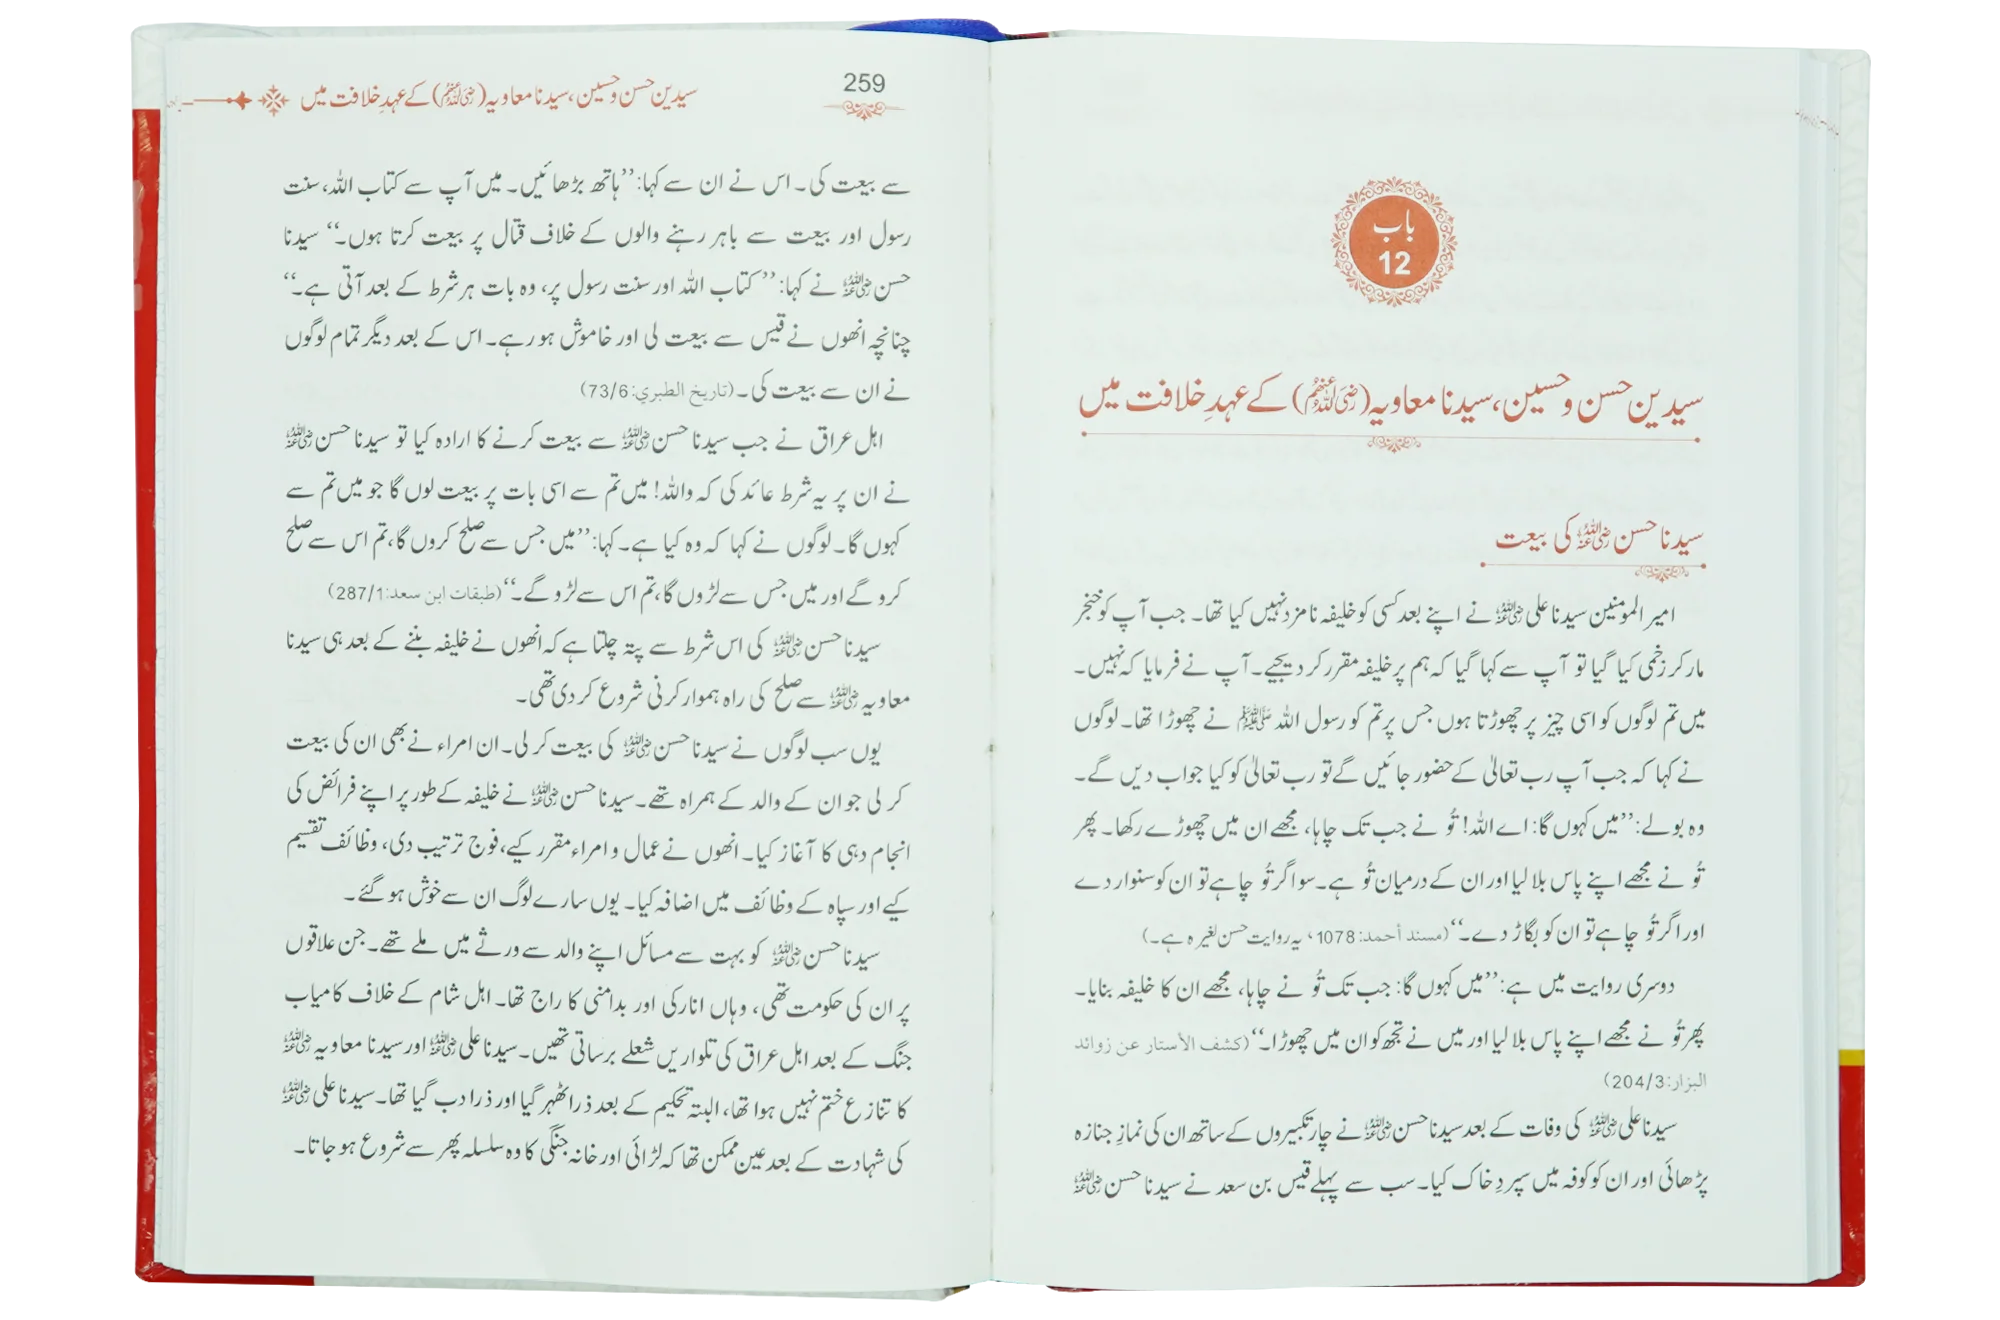 باب
12
سیدین حسن و حسین، سیدنا معاویہ (رضی اللہ عنہم) کے عہدِ خلافت میں
سیدنا حسن رضی اللہ عنہ کی بیعت
امیر المومنین سیدنا علی رضی اللہ عنہ نے اپنے بعد کسی کو خلیفہ نامزد نہیں کیا تھا۔ جب آپ کو خنجر
مار کر زخمی کیا گیا تو آپ سے کہا گیا کہ ہم پر خلیفہ مقرر کر دیجیے۔ آپ نے فرمایا کہ نہیں۔
میں تم لوگوں کو اسی چیز پر چھوڑتا ہوں جس پر تم کو رسول اللہ ﷺ نے چھوڑا تھا۔ لوگوں
نے کہا کہ جب آپ رب تعالیٰ کے حضور جائیں گے تو رب تعالیٰ کو کیا جواب دیں گے۔
وہ بولے: ’’میں کہوں گا: اے اللہ! تُو نے جب تک چاہا، مجھے ان میں چھوڑے رکھا۔ پھر
تُو نے مجھے اپنے پاس بلا لیا اور ان کے درمیان تُو ہے۔ سو اگر تُو چاہے تو ان کو سنوار دے
اور اگر تُو چاہے تو ان کو بگاڑ دے۔‘‘ (مسند أحمد: 1078، یہ روایت حسن لغیرہ ہے۔)
دوسری روایت میں ہے: ’’میں کہوں گا: جب تک تُو نے چاہا، مجھے ان کا خلیفہ بنایا۔
پھر تُو نے مجھے اپنے پاس بلا لیا اور میں نے تجھ کو ان میں چھوڑا۔‘‘ (كشف الأستار عن زوائد
البزار: 204/3)
سیدنا علی رضی اللہ عنہ کی وفات کے بعد سیدنا حسن رضی اللہ عنہ نے چار تکبیروں کے ساتھ ان کی نمازِ جنازہ
پڑھائی اور ان کو کوفہ میں سپردِ خاک کیا۔ سب سے پہلے قیس بن سعد نے سیدنا حسن رضی اللہ عنہ
سیدین حسن و حسین، سیدنا معاویہ (رضی اللہ عنہم) کے عہدِ خلافت میں
259
سے بیعت کی۔ اس نے ان سے کہا: ’’ہاتھ بڑھائیں۔ میں آپ سے کتاب اللہ، سنت
رسول اور بیعت سے باہر رہنے والوں کے خلاف قتال پر بیعت کرتا ہوں۔‘‘ سیدنا
حسن رضی اللہ عنہ نے کہا: ’’کتاب اللہ اور سنت رسول پر، وہ بات ہر شرط کے بعد آتی ہے۔‘‘
چنانچہ انھوں نے قیس سے بیعت لی اور خاموش ہو رہے۔ اس کے بعد دیگر تمام لوگوں
نے ان سے بیعت کی۔ (تاريخ الطبري: 73/6)
اہل عراق نے جب سیدنا حسن رضی اللہ عنہ سے بیعت کرنے کا ارادہ کیا تو سیدنا حسن رضی اللہ عنہ
نے ان پر یہ شرط عائد کی کہ واللہ! میں تم سے اسی بات پر بیعت لوں گا جو میں تم سے
کہوں گا۔ لوگوں نے کہا کہ وہ کیا ہے۔ کہا: ’’میں جس سے صلح کروں گا، تم اس سے صلح
کرو گے اور میں جس سے لڑوں گا، تم اس سے لڑو گے۔‘‘ (طبقات ابن سعد: 287/1)
سیدنا حسن رضی اللہ عنہ کی اس شرط سے پتہ چلتا ہے کہ انھوں نے خلیفہ بننے کے بعد ہی سیدنا
معاویہ رضی اللہ عنہ سے صلح کی راہ ہموار کرنی شروع کر دی تھی۔
یوں سب لوگوں نے سیدنا حسن رضی اللہ عنہ کی بیعت کر لی۔ ان امراء نے بھی ان کی بیعت
کر لی جو ان کے والد کے ہمراہ تھے۔ سیدنا حسن رضی اللہ عنہ نے خلیفہ کے طور پر اپنے فرائض کی
انجام دہی کا آغاز کیا۔ انھوں نے عمال و امراء مقرر کیے، فوج ترتیب دی، وظائف تقسیم
کیے اور سپاہ کے وظائف میں اضافہ کیا۔ یوں سارے لوگ ان سے خوش ہو گئے۔
سیدنا حسن رضی اللہ عنہ کو بہت سے مسائل اپنے والد سے ورثے میں ملے تھے۔ جن علاقوں
پر ان کی حکومت تھی، وہاں انارکی اور بدامنی کا راج تھا۔ اہل شام کے خلاف کامیاب
جنگ کے بعد اہل عراق کی تلواریں شعلے برساتی تھیں۔ سیدنا علی رضی اللہ عنہ اور سیدنا معاویہ رضی اللہ عنہ
کا تنازع ختم نہیں ہوا تھا، البتہ تحکیم کے بعد ذرا ٹھہر گیا اور ذرا دب گیا تھا۔ سیدنا علی رضی اللہ عنہ
کی شہادت کے بعد عین ممکن تھا کہ لڑائی اور خانہ جنگی کا وہ سلسلہ پھر سے شروع ہو جاتا۔